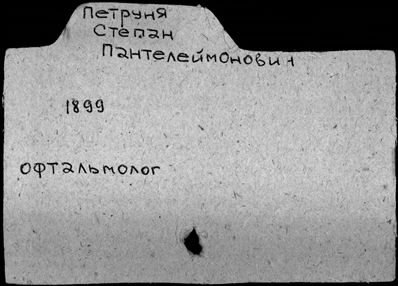 Петруня
Степан
Пантелеймонович
1899
офтальмолог